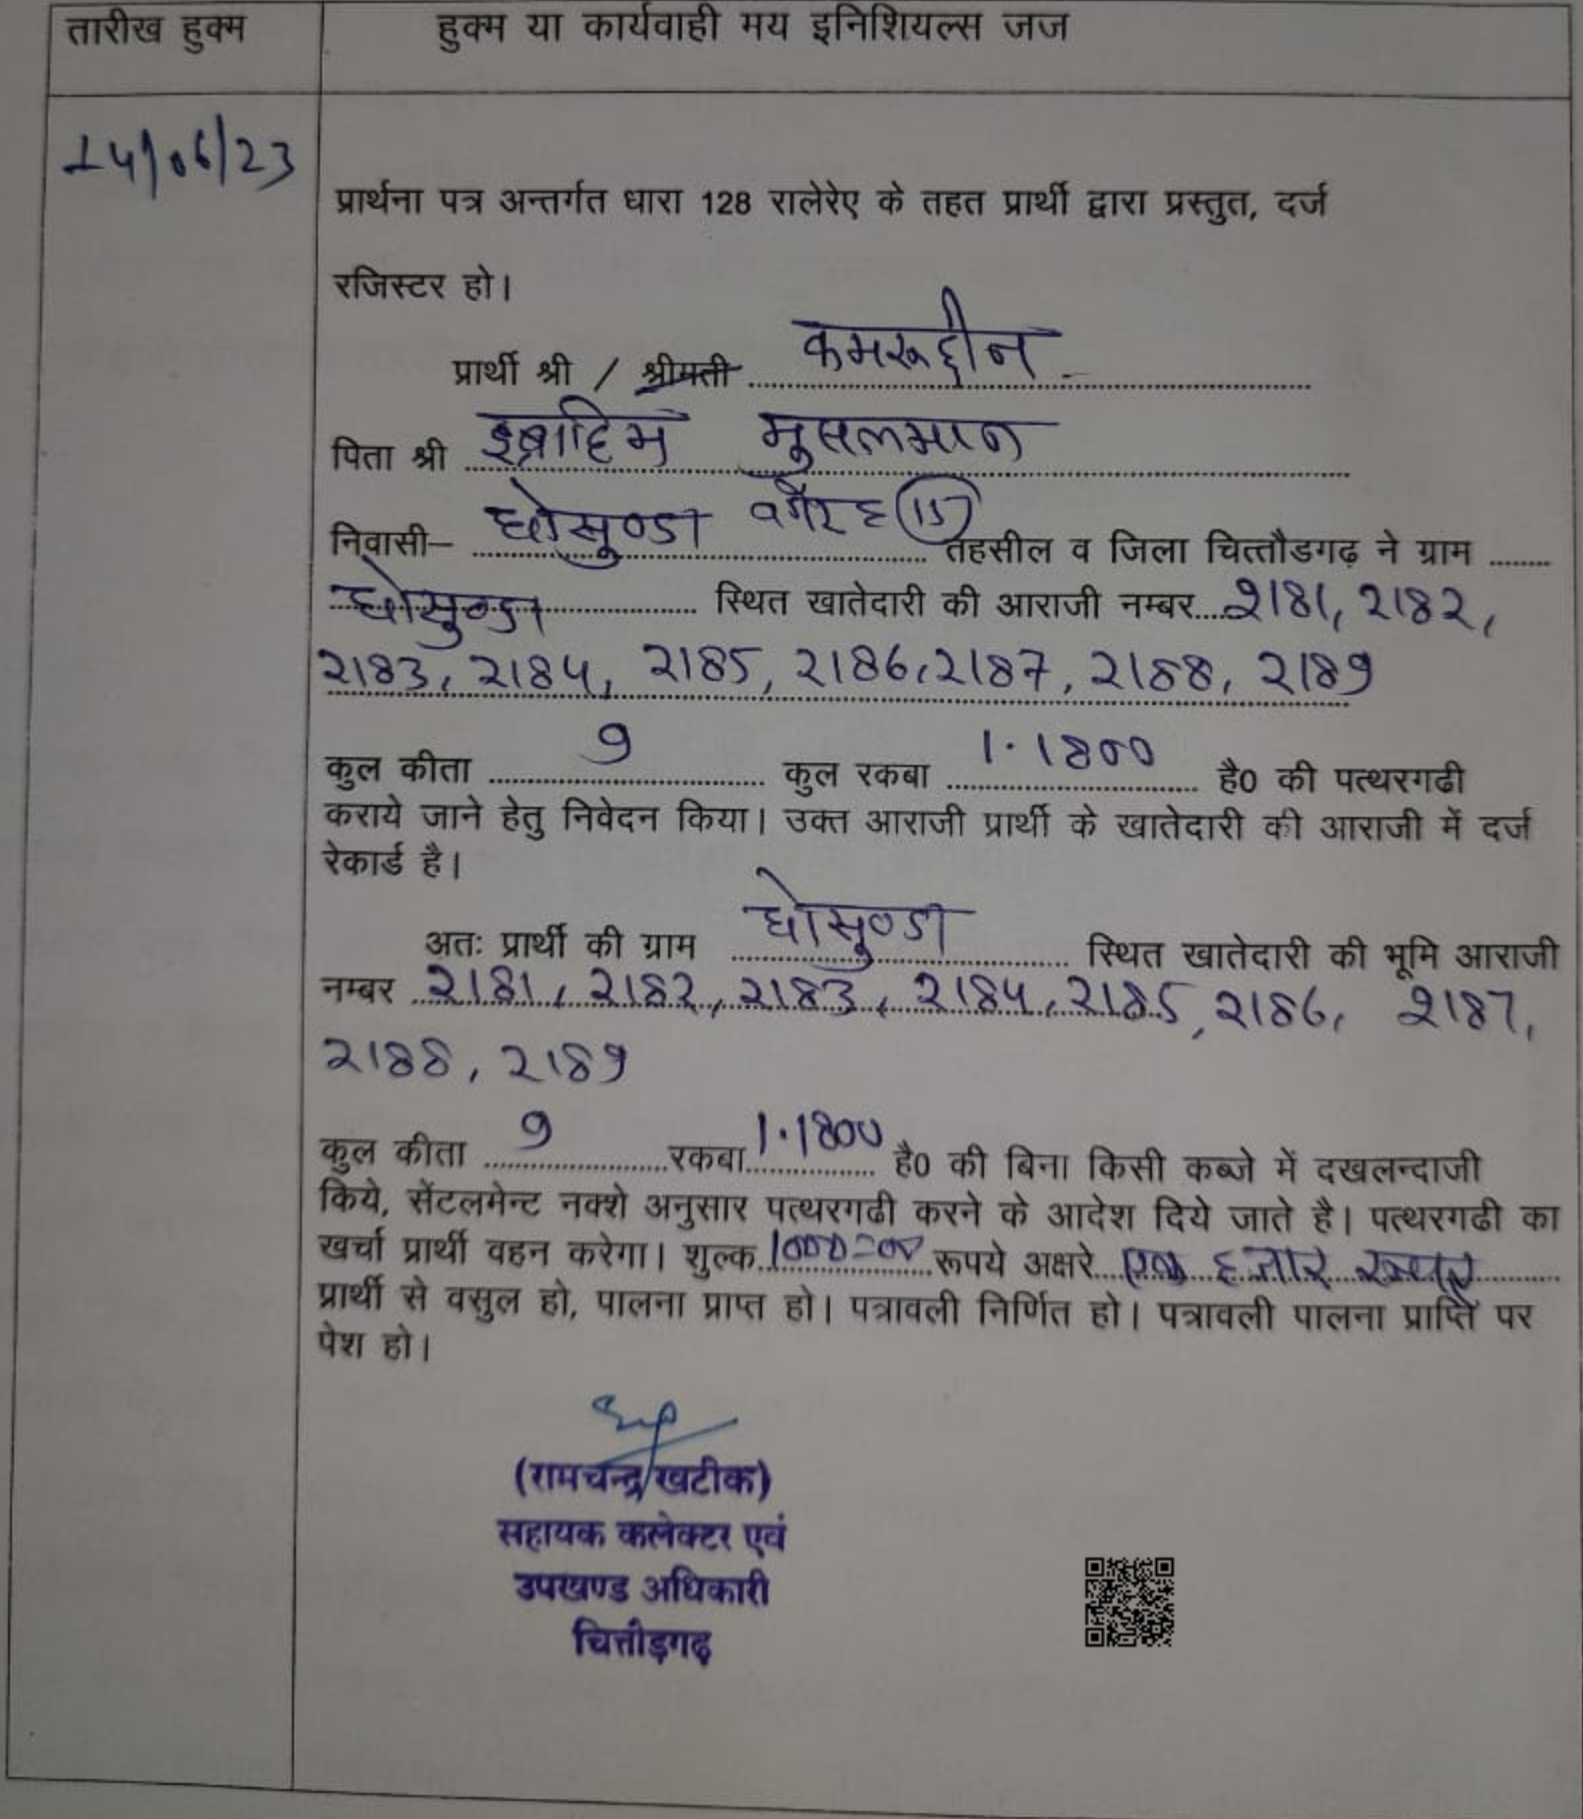 तारीख हुक्म
हुक्म या कार्यवाही मय इनिशियल्स जज
14/06/23
प्रार्थना पत्र अन्तर्गत धारा 128 रालेरेए के तहत प्रार्थी द्वारा प्रस्तुत, दर्ज
रजिस्टर हो।
प्रार्थी श्री / श्रीमती कमरूद्दीन
पिता श्री इब्राहिम मुसलमान
निवासी– घोसुण्डा वगैरह तहसील व जिला चित्तौडगढ़ ने ग्राम
घोसुण्डा स्थित खातेदारी की आराजी नम्बर 2181, 2182,
2183, 2184, 2185, 2186, 2187, 2188, 2189
कुल कीता 9 कुल रकबा 1.1800 है0 की पत्थरगढी
कराये जाने हेतु निवेदन किया। उक्त आराजी प्रार्थी के खातेदारी की आराजी में दर्ज
रेकार्ड है।
अतः प्रार्थी की ग्राम घोसुण्डा स्थित खातेदारी की भूमि आराजी
नम्बर 2181, 2182, 2183, 2184, 2185, 2186, 2187,
2188, 2189
कुल कीता 9 रकबा 1.1800 है0 की बिना किसी कब्जे में दखलन्दाजी
किये, सेंटलमेन्ट नक्शे अनुसार पत्थरगढी करने के आदेश दिये जाते है। पत्थरगढी का
खर्चा प्रार्थी वहन करेगा। शुल्क 1000=00 रूपये अक्षरे एक हजार रूपए
प्रार्थी से वसुल हो, पालना प्राप्त हो। पत्रावली निर्णित हो। पत्रावली पालना प्राप्ति पर
पेश हो।
(रामचन्द्र खटीक)
सहायक कलेक्टर एवं
उपखण्ड अधिकारी
चित्तौड़गढ़